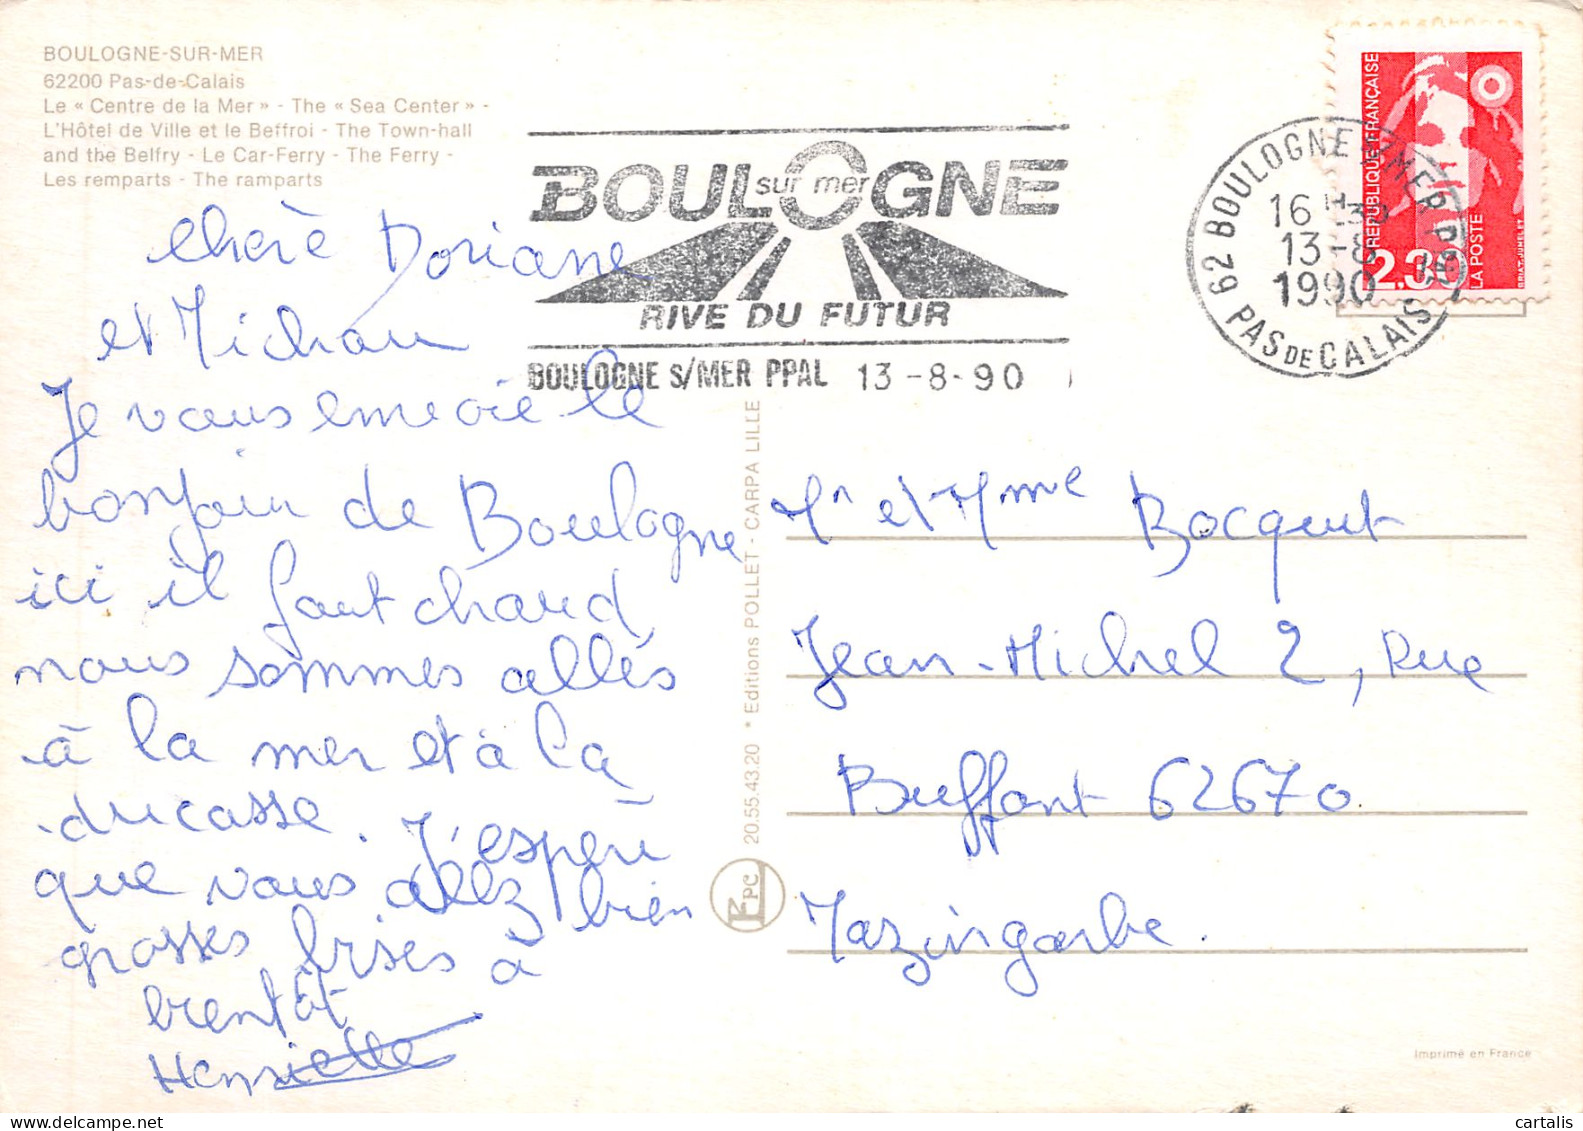 BOULOGNE-SUR-MER
62200 Pas-de-Calais
Le « Centre de la Mer » - The « Sea Center » -
L'Hôtel de Ville et le Beffroi - The Town-hall
and the Belfry - Le Car-Ferry - The Ferry -
Les remparts - The ramparts
BOULOGNE
sur mer
RIVE DU FUTUR
BOULOGNE S/MER PPAL 13-8-90
62 BOULOGNE S/MER PPAL
16 H 30
13-8
1990
PAS DE CALAIS
REPUBLIQUE FRANÇAISE
2.30
LA POSTE
BRIAT-JUMELET
chère Doriane
et Michau
Je vous envoie le
bonjour de Boulogne
ici il faut chaud
nous sommes allés
à la mer et à la
ducasse. J'espere
que vous allez bien
grosses brises à
bientôt
Henriette
20.55.43.20 * Editions POLLET - CARPA LILLE
EPC
Mr et Mme Bocquet
Jean-Michel 2, Rue
Buffont 62670
Mazingarbe.
Imprimé en France
cartalis